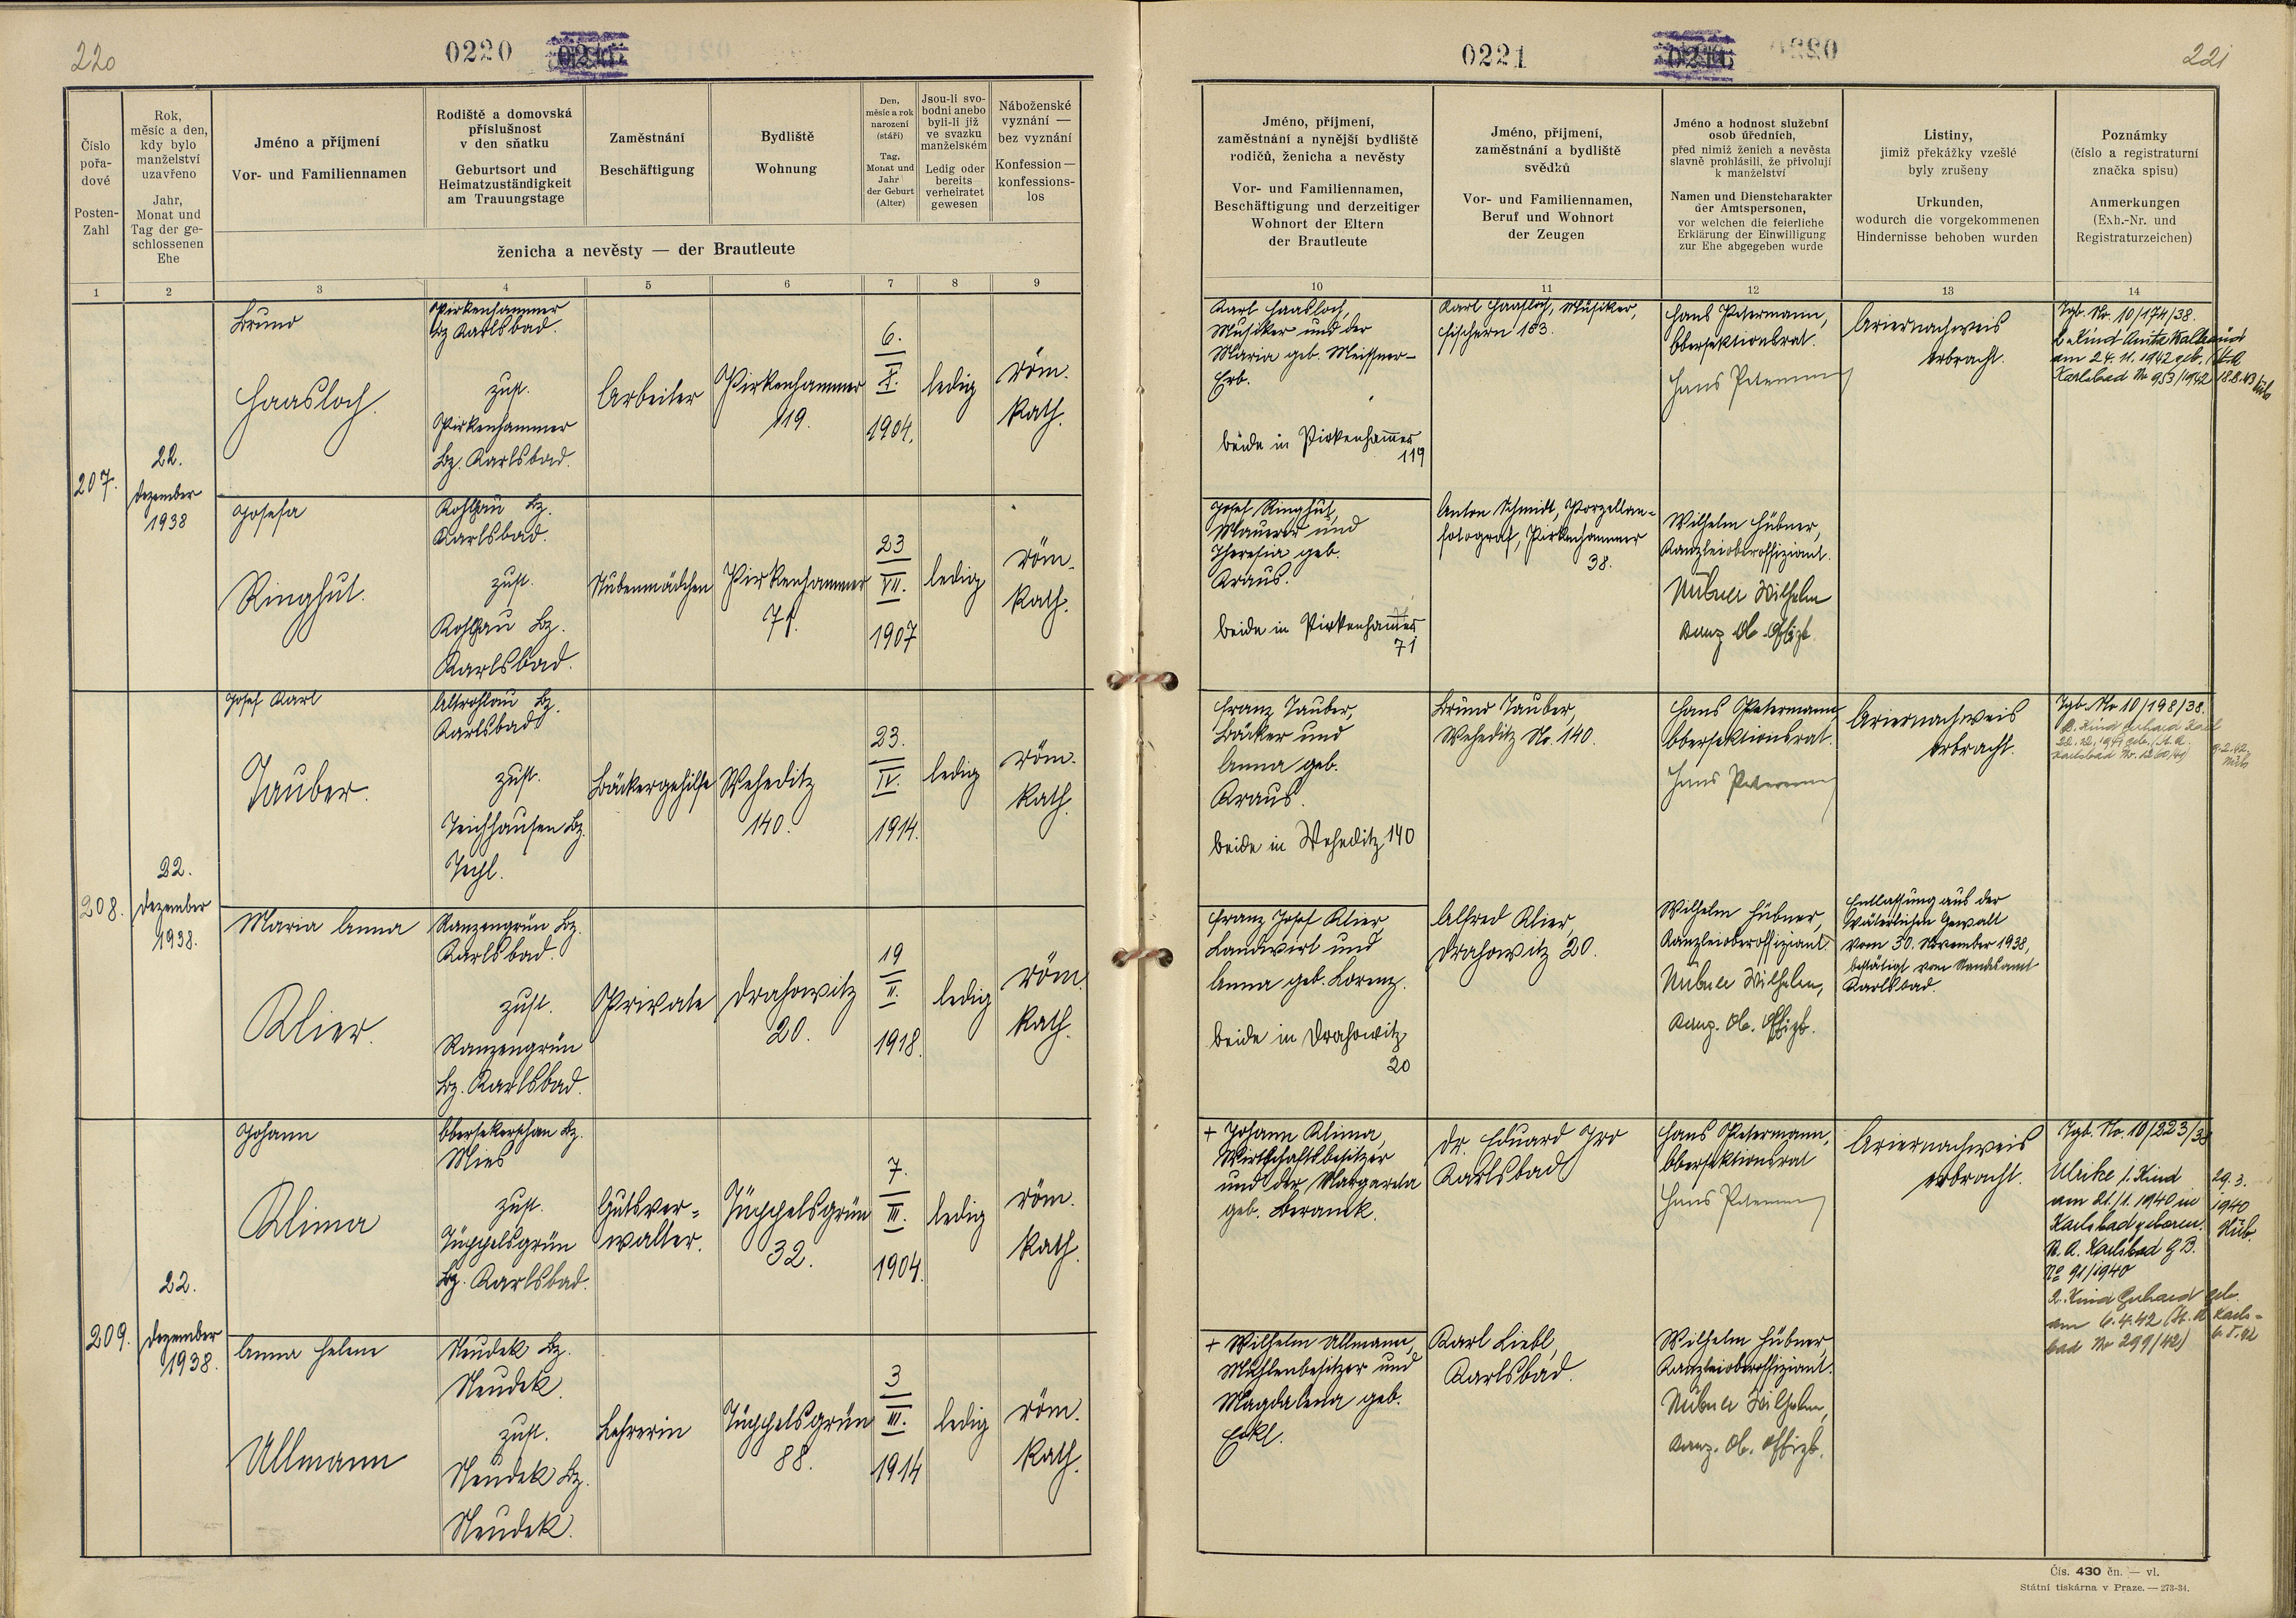 220
0220
Číslo
pořa-
dové
Posten-
Zahl
Rok,
měsíc a den,
kdy bylo
manželství
uzavřeno
Jahr,
Monat und
Tag der ge-
schlossenen
Ehe
Jméno a příjmení
Vor- und Familiennamen
Rodiště a domovská
příslušnost
v den sňatku
Geburtsort und
Heimatzuständigkeit
am Trauungstage
Zaměstnání
Beschäftigung
Bydliště
Wohnung
Den,
měsíc a rok
narození
(stáří)
Tag,
Monat und
Jahr
der Geburt
(Alter)
Jsou-li svo-
bodni anebo
byli-li již
ve svazku
manželském
Ledig oder
bereits
verheiratet
gewesen
Náboženské
vyznání —
bez vyznání
Konfession —
konfessions-
los
ženicha a nevěsty — der Brautleute
1 2 3 4 5 6 7 8 9
207.
22.
Dezember
1938
Bruno
Haasloch.
Pirkenhammer
Bz Karlsbad.
zust.
Pirkenhammer
Bz. Karlsbad.
Arbeiter
Pirkenhammer
119.
6.
X.
1904.
ledig
röm.
kath.
Josefa
Ringhut.
Kohlhau Bz.
Karlsbad.
zust.
Kohlhau Bz.
Karlsbad.
Stubenmädchen
Pirkenhammer
71.
23
VII.
1907
ledig
röm.
kath.
208.
22.
Dezember
1938.
Josef Karl
Tauber.
Altrohlau Bz.
Karlsbad
zust.
Teichhausen Bz.
Techl.
Bäckergehilfe
Weheditz
140.
23.
IV.
1914.
ledig
röm.
kath.
Maria Anna
Klier.
Ranzengrün Bz.
Karlsbad.
zust.
Ranzengrün
Bz. Karlsbad.
Private
Drahowitz
20.
19
II.
1918.
ledig
röm.
kath.
209.
22.
Dezember
1938.
Johann
Klima
Obersekerschan Bz.
Mies
zust.
Tüppelsgrün
Bz. Karlsbad.
Gutsver-
walter.
Tüppelsgrün
32.
7.
III.
1904.
ledig
röm.
kath.
Anna Helene
Ullmann
Neudek Bz.
Neudek.
zust.
Neudek Bz.
Neudek.
Lehrerin
Tüppelsgrün
88.
3
III.
1914
ledig
röm.
kath.
0221
221
Jméno, příjmení,
zaměstnání a nynější bydliště
rodičů, ženicha a nevěsty
Vor- und Familiennamen,
Beschäftigung und derzeitiger
Wohnort der Eltern
der Brautleute
Jméno, příjmení,
zaměstnání a bydliště
svědků
Vor- und Familiennamen,
Beruf und Wohnort
der Zeugen
Jméno a hodnost služební
osob úředních,
před nimiž ženich a nevěsta
slavně prohlásili, že přivolují
k manželství
Namen und Dienstcharakter
der Amtspersonen,
vor welchen die feierliche
Erklärung der Einwilligung
zur Ehe abgegeben wurde
Listiny,
jimiž překážky vzešlé
byly zrušeny
Urkunden,
wodurch die vorgekommenen
Hindernisse behoben wurden
Poznámky
(číslo a registraturní
značka spisu)
Anmerkungen
(Exh.-Nr. und
Registraturzeichen)
10 11 12 13 14
Karl Haasloch,
Musiker und der
Maria geb. Meissner-
Erb.
beide in Pirkenhammer
119
Karl Haasloch, Musiker,
Fischern 153.
Hans Petermann,
Obersektionsrat.
Hans Petermann
Ariernachweis
erbracht.
Tgb. Nr. 10/174/38.
am 24. 11. 1942 geb. (St. A
Karlsbad Nr 953/1942 18.8.43
Josef Ringhut,
Maurer und
Theresia geb.
Kraus.
beide in Pirkenhammer
71
Anton Schmidt, Porzellan-
fotograf, Pirkenhammer
38.
Wilhelm Hübner,
Kanzleioberoffiziant.
Hübner Wilhelm
Kanz. Ob. Offizt.
Franz Tauber,
Bäcker und
Anna geb.
Kraus.
beide in Weheditz 140
Bruno Tauber,
Weheditz Nr. 140.
Hans Petermann,
Obersektionsrat.
Hans Petermann
Ariernachweis
erbracht.
Tgb. No 10/198/38.
Franz Josef Klier,
Landwirt und
Anna geb. Lorenz.
beide in Drahowitz
20
Alfred Klier,
Drahowitz 20.
Wilhelm Hübner,
Kanzleioberoffiziant.
Hübner Wilhelm,
Kanz. Ob. Offizt.
Entlassung aus der
väterlichen Gewalt
vom 30. November 1938,
bestätigt vom Standesamt
Karlsbad.
+ Johann Klima,
Wirtschaftsbesitzer
und der Margareta
geb. Beranek.
Dr. Eduard Iro
Karlsbad
Hans Petermann,
Obersektionsrat
Hans Petermann
Ariernachweis
erbracht.
Tgb. No. 10/223/38
Ulrike 1. Kind
am 21./1. 1940 in
Karlsbad geboren.
St. A. Karlsbad G.B.
No 91/1940
29. 3.
1940
Hüb.
2. Kind Gerhard geb.
am 6.4.42 (St. A Karls-
bad Nr 299/42)
+ Wilhelm Ullmann,
Mühlenbesitzer und
Magdalena geb.
Eckl.
Karl Liebl,
Karlsbad.
Wilhelm Hübner,
Kanzleioberoffiziant.
Hübner Wilhelm,
Kanz. Ob. Offizt.
Čís. 430 čn. — vl.
Státní tiskárna v Praze. — 273-34.